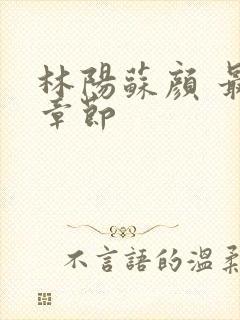 林陽蘇顏 最
章節
不言語的溫柔